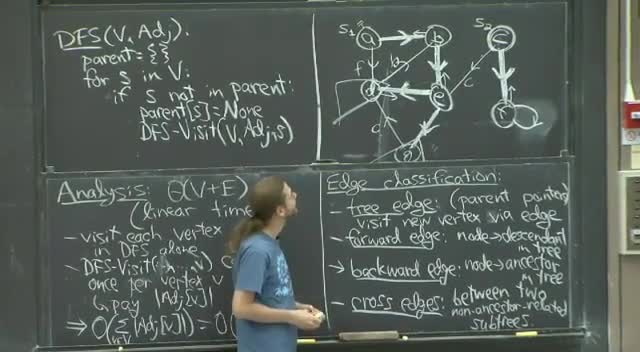 DFS(V, Adj):
parent = {}
for s in V:
if s not in parent:
parent[s] = None
DFS-Visit(V, Adj, s)
S₁ a b S₂ c
f b c
d e f
Analysis: Θ(V+E)
(linear time
- visit each vertex
in DFS alone
- DFS-Visit(
once per vertex v
↳ pay |Adj[v]|
⇒ O(Σ |Adj[v]|) = O(
v∈V
Edge classification:
- tree edge: (parent pointers)
visit new vertex via edge
- forward edge: node→descendant
in tree
→ backward edge: node→ancestor
in tree
- cross edges: between two
non-ancestor-related
subtrees